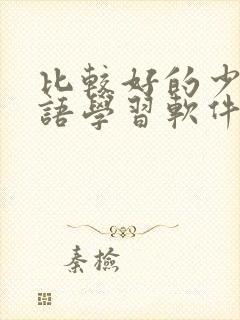 比較好的少
語學習軟件
秦檢